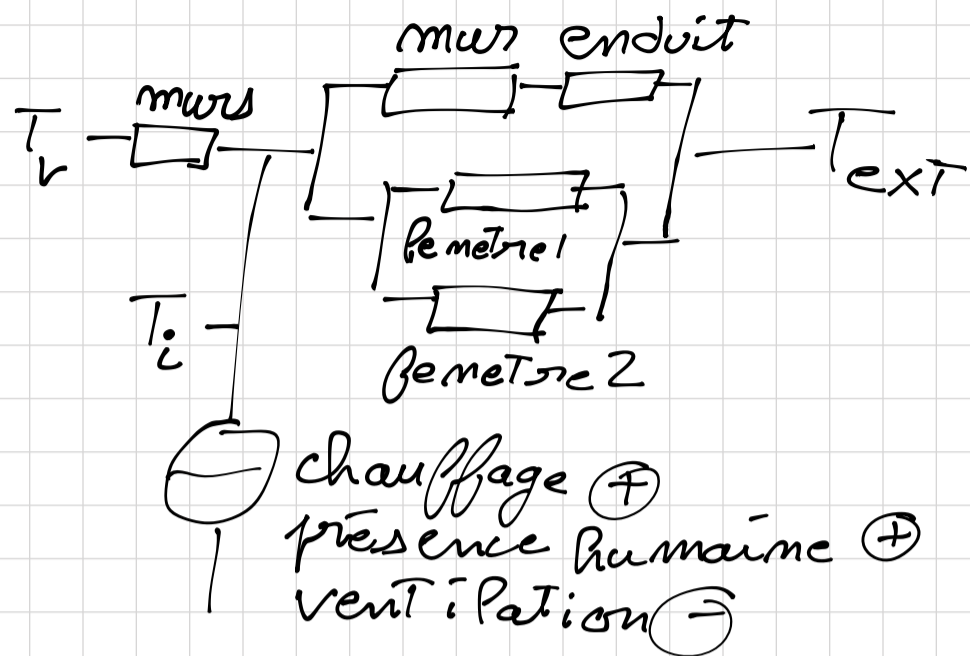 mur enduit
murs
Tv
Text
fenetre 1
Ti
fenetre 2
chauffage +
présence humaine +
ventilation -